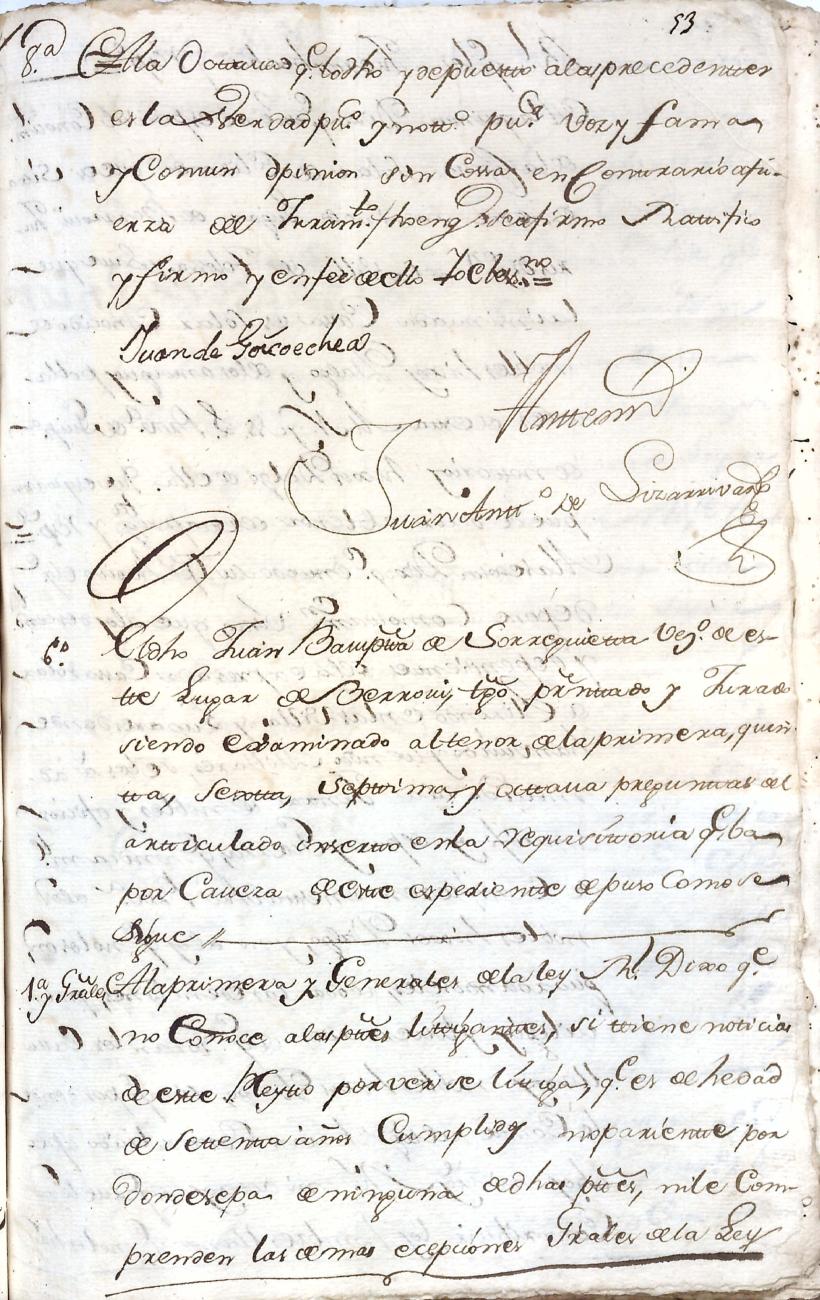 53
8.ª A la Octaua q.e lo dho y depuesto a las precedentes
es la Verdad pu.co y nott.o pu.ca Voz y fama
y Comun opinion sin Cossa en Contrario a fu-
erza de Juram.to fho en q.e se afirmo Rattifico
y firmo y en fee de ello Yo el es.no =
Juan de Goicoechea
Antte mi
Juan Antt.o de Lizarrivar
6.º El dho Juan Bauptta de Sorreguietta Vez.o de es-
tte Lugar de Berroui, tgo pressnttado y Jurado
siendo examinado al tenor, de la primera, quin-
tta, sexta, septtima, y octtaua preguntas del
artticulado inserto en la requisittoria q.e ba
por Caueza de este espediente depuso Como se
sigue //
1.ª y Grâles A la primera y Generales de la ley R.l Dixo q.e
no Conoce a las pttes littiganttes, si ttiene noticias
de este Pleytto por ver se littiga, q.e es de hedad
de Settentta años Cumplidos no pariente por
donde sepa de ninguna de dhas pttes, ni le Com-
prenden las demas ecepciones Grâles de la Ley